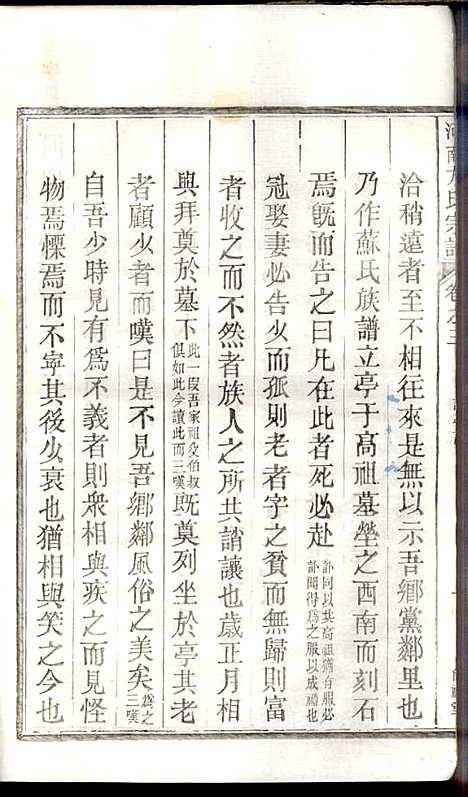 氏宗譜 卷之三
洽稍遠者至不相往來是無以示吾鄉黨鄰里也
乃作蘇氏族譜立亭于高祖墓塋之西南而刻石
焉旣而告之曰凡在此者死必赴訃同以其高祖猶有服必訃聞得爲之服以成禮也
冠娶妻必告少而孤則老者字之貧而無歸則富
者收之而不然者族人之所共誚讓也歲正月相
與拜奠於墓下此一段吾家祖父伯叔俱如此今讀此而三嘆旣奠列坐於亭其老
者顧少者而嘆曰是不見吾鄉鄰風俗之美矣爲之三嘆
自吾少時見有爲不義者則衆相與疾之而見怪
物焉慄焉而不寧其後少衰也猶相與笑之今也